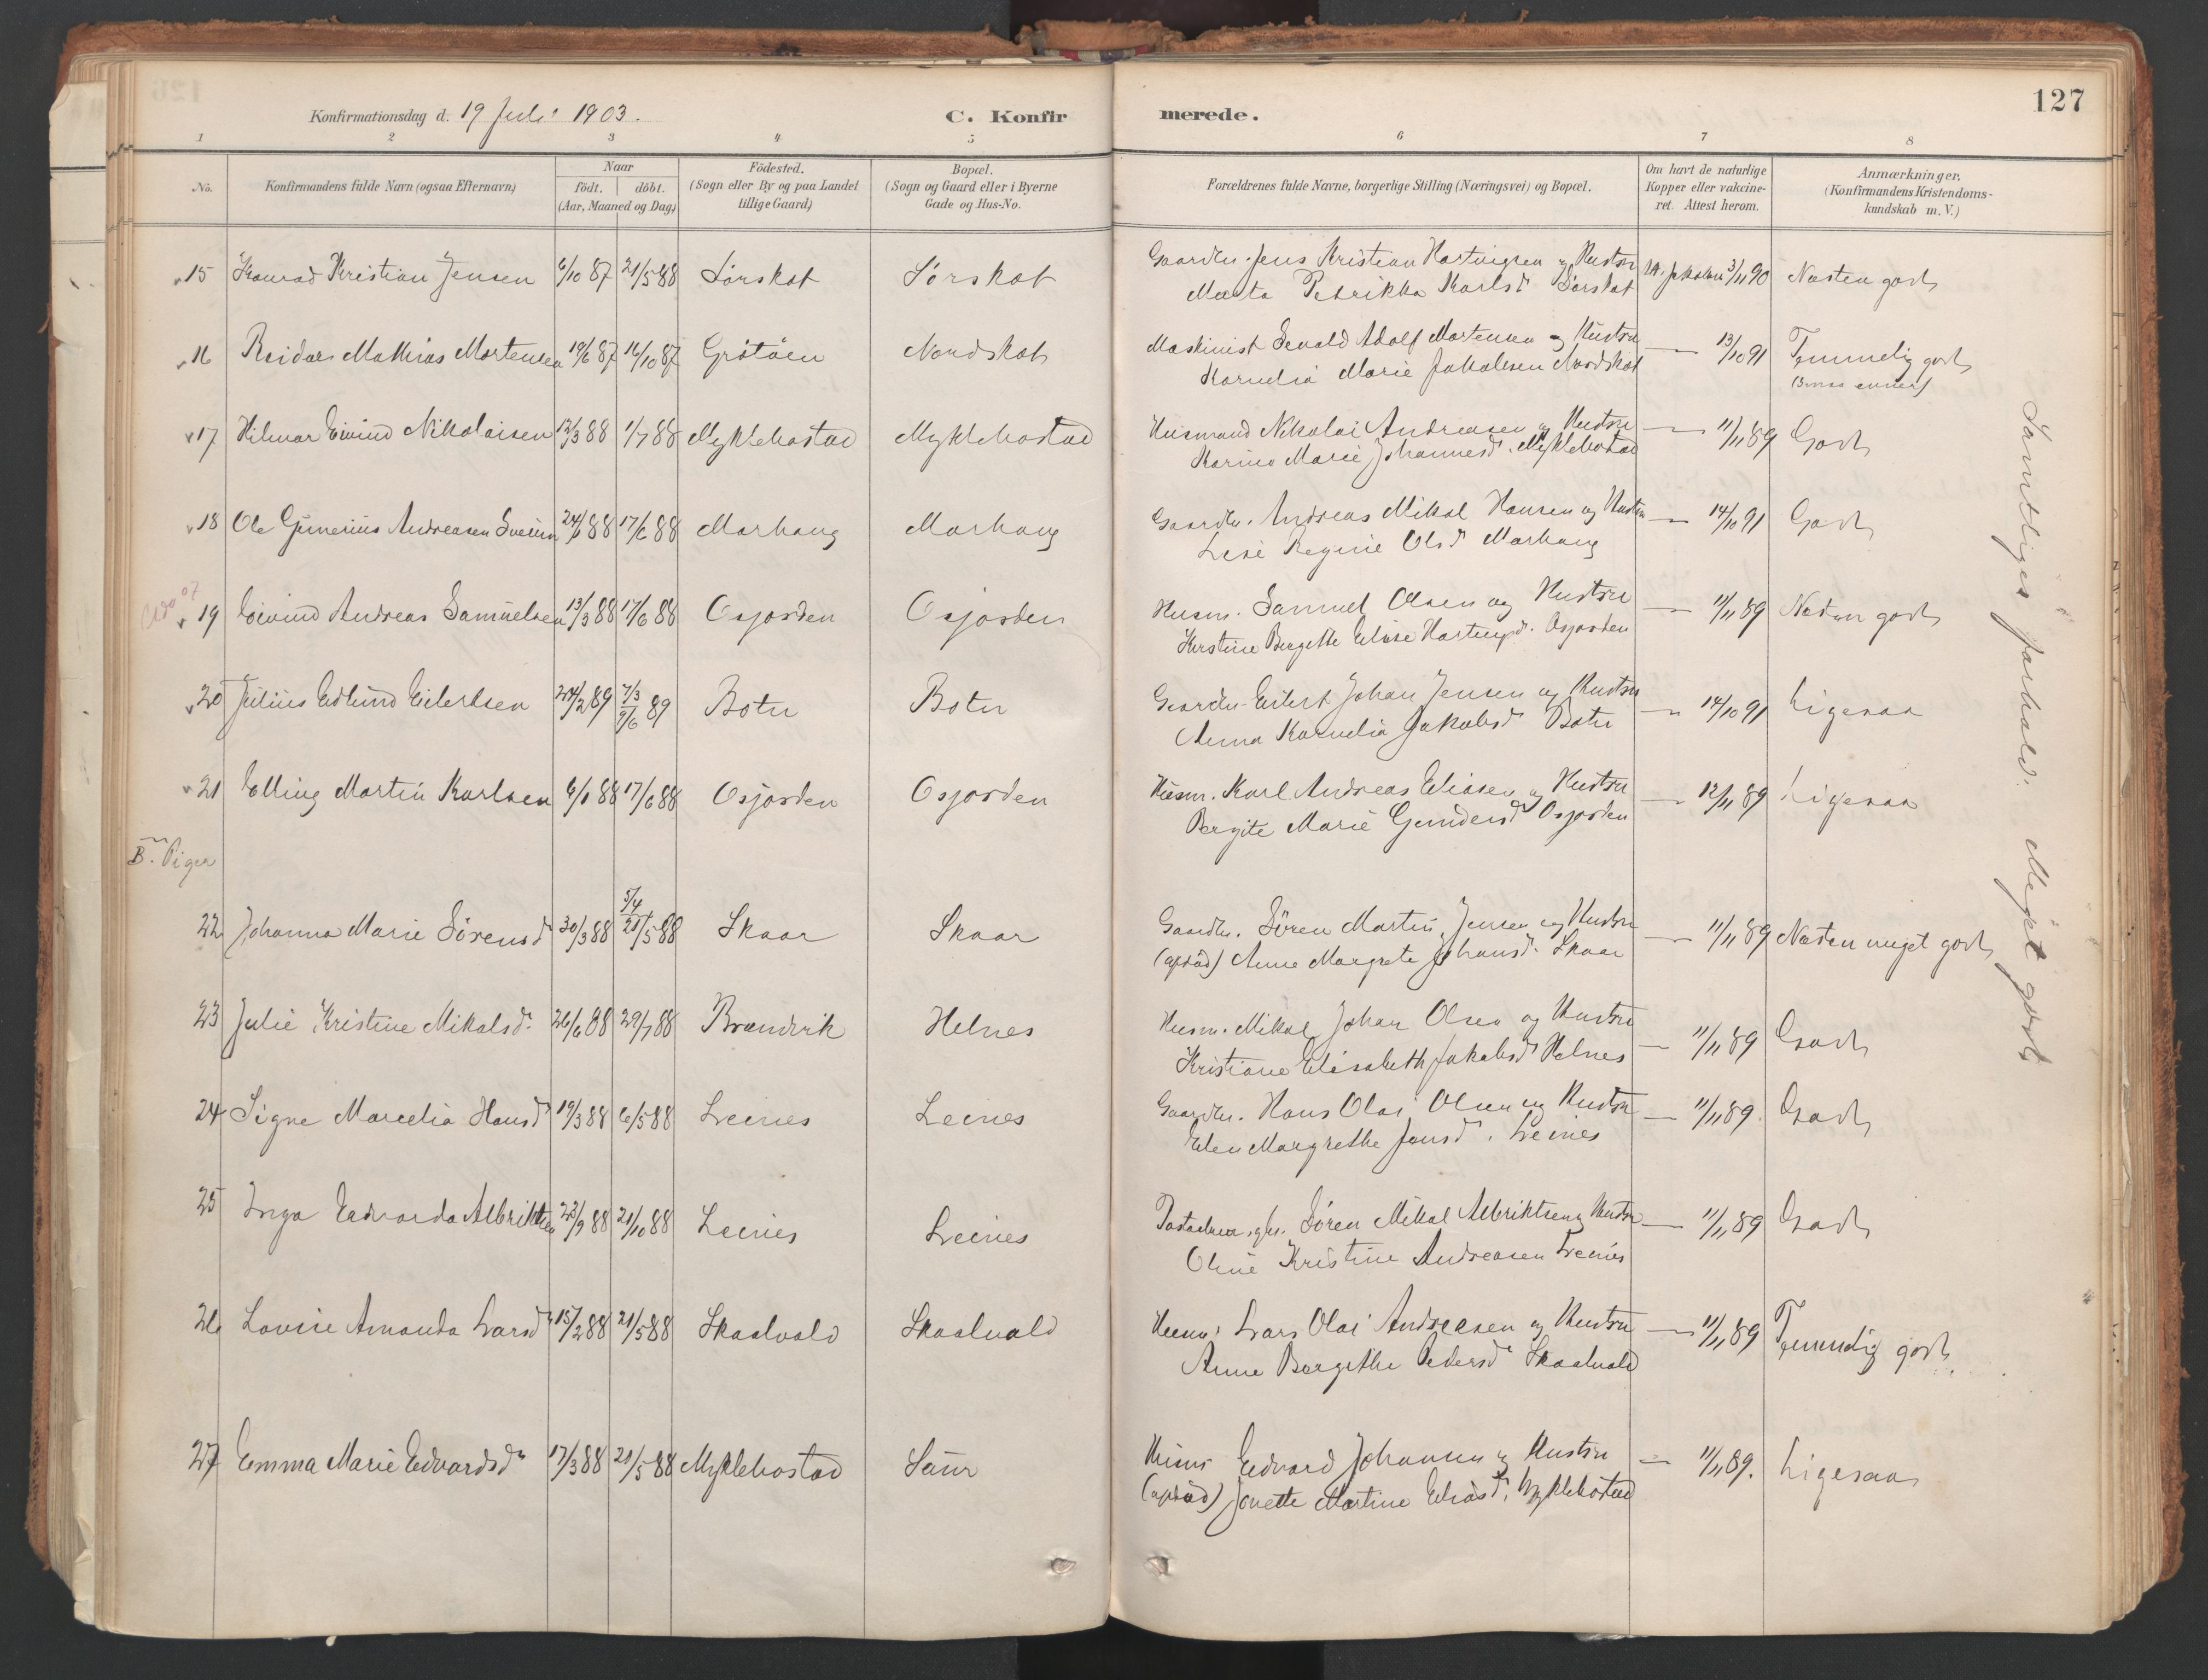 127
Konfirmationsdag d. 19 Juli 1903.
C. Konfirmerede.
1 2 3 4 5 6 7 8
No.
Konfirmandens fulde Navn (ogsaa Efternavn)
Naar
født. døbt.
(Aar, Maaned og Dag)
Fødested.
(Sogn eller By og paa Landet
tillige Gaard)
Bopæl.
(Sogn og Gaard eller i Byerne
Gade og Hus-No.
Forældrenes fulde Navne, borgerlige Stilling (Næringsvei) og Bopæl.
Om havt de naturlige
Kopper eller vakcine-
ret. Attest herom.
Anmærkninger.
(Konfirmandens Kristendoms-
kundskab m.V.)
15 Konrad Kristian Jensen 6/10 87 21/5 88 Sørskot Sørskot
Gaardbr. Jens Kristian Hartvigsen og Hustru
Marta Petrikka Karlsd. Sørskot
3/11 90 Næsten godt
16 Reidar Mathias Mortensen 19/6 87 16/10 87 Grøtøen Nordskot
Maskinist Sevald Adolf Mortensen og Hustru
Kornelia Marie Jakobsen Nordskot
— 13/10 91 Temmelig godt
17 Hilmar Eivind Nikolaisen 12/3 88 1/7 88 Myklebostad Myklebostad
Husmand Nikolai Andreasen og Hustru
Karine Marie Johannesd. Myklebostad
— 11/11 89 Godt
18 Ole Gunerius Andreasen 24/1 88 17/6 88 Marhaug Marhaug
Gaardbr. Andreas Mikal Hansen og Hustru
Lise Regine Olsd. Marhaug
— 14/10 91 Godt
19 Eivind Andreas Samuelsen 13/3 88 17/6 88 Osjorden Osjorden
Husm. Samuel Olsen og Hustru
Kirstine Bergette Elise Hartvigsd. Osjorden
— 11/11 89 Næsten godt
20 Julius Edlund Eilertsen 24/2 89 7/3 9/6 89 Botn Botn
Gaardbr. Eilert Johan Jensen og Hustru
Anna Kornelia Jakobsd. Botn
— 14/10 91 Ligesaa
21 Elling Martin Karlsen 6/1 88 17/6 88 Osjorden Osjorden
Husm. Karl Andreas Eliasen og Hustru
Bergite Marie Gundersd. Osjorden
— 12/11 89 Ligesaa
B. Piger
22 Johanna Marie Sørensd. 30/3 88 5/4 21/5 88 Skaar Skaar
Gaardbr. Søren Martin Jensen og Hustru
(afdød) Anne Margrete Johansd. Skaar
— 11/11 89 Næsten meget godt
23 Julie Kristine Mikalsd. 26/6 88 29/7 88 Brændvik Helnes
Husm. Mikal Johan Olsen og Hustru
Kristiane Elisabeth Jakobsd. Helnes
— 11/11 89 Godt
24 Signe Marcelia Hansd. 19/3 88 6/5 88 Leines Leines
Gaardbr. Hans Olai Olsen og Hustru
Elen Margrethe Jensd. Leines
— 11/11 89. Godt
25 Inga Edvarda Albriktsen 23/9 88 21/10 88 Leines Leines
Søren Mikal Albriktsen og Hustru
Oline Kristine Andreasen Leines
— 11/11 89 Godt
26 Lovise Amanda Larsd. 15/2 88 21/5 88 Skaalvold Skaalvold
Husm. Lars Olai Andreasen og Hustru
Anne Bergithe Pedersd. Skaalvold
— 11/11 89 Temmelig godt
27 Emma Marie Edvardsd. 17/3 88 21/5 88 Myklebostad Saur
Husm. Edvard Johansen og Hustru
(afdød) Jonette Martine Eliasd. Myklebostad
— 11/11 89. Ligesaa
Samtliges forhold: Meget godt